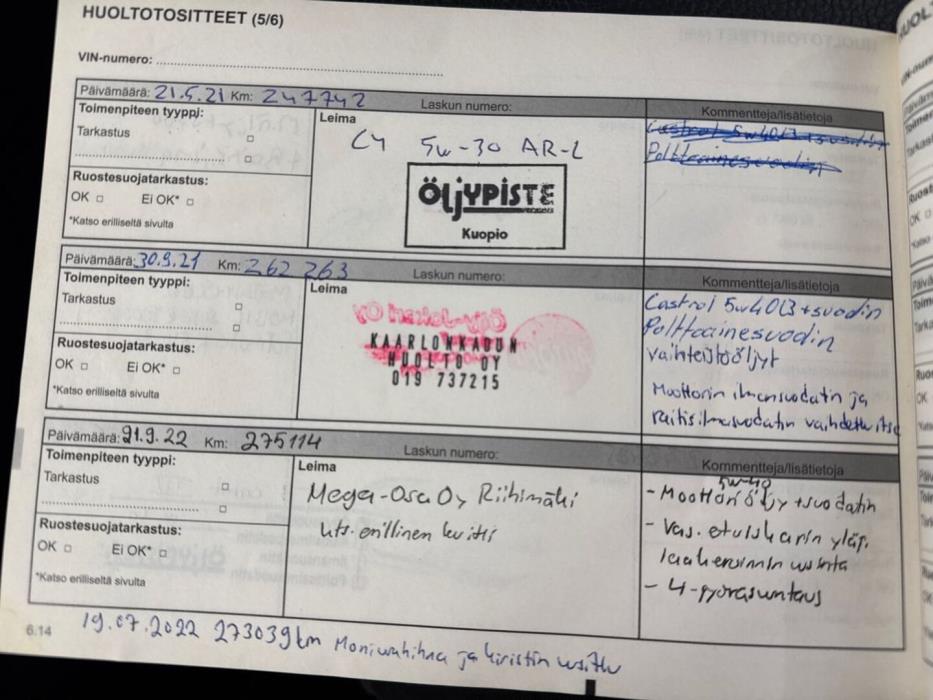 HUOLTOTOSITTEET (5/6)
VIN-numero:
Päivämäärä: 21.5.21 Km: 247742 Laskun numero:
Kommentteja/lisätietoja
Toimenpiteen tyyppi:
Tarkastus
Ruostesuojatarkastus:
OK Ei OK*
*Katso erilliseltä sivulta
Leima
C4 5w-30 AR-L
ÖLJYPISTE
Kuopio
Castrol 5w40 13 + suodin
Polttoainesuodin
Päivämäärä: 30.9.21 Km: 262 263 Laskun numero:
Kommentteja/lisätietoja
Toimenpiteen tyyppi:
Tarkastus
Ruostesuojatarkastus:
OK Ei OK*
*Katso erilliseltä sivulta
Leima
KAARLONKADUN
HUOLTO OY
019 737215
Castrol 5w40 13 + suodin
Polttoainesuodin
vaihteistoöljyt
Moottorin ilmansuodatin ja
raitisilmasuodatin vaihdettu itse
Päivämäärä: 21.9.22 Km: 275114 Laskun numero:
Kommentteja/lisätietoja
Toimenpiteen tyyppi:
Tarkastus
Ruostesuojatarkastus:
OK Ei OK*
*Katso erilliseltä sivulta
Leima
Mega-Osa Oy Riihimäki
kts. erillinen kuitti
5w-40
- Moottoriöljy + suodatin
- Vas. etuiskarin yläp.
laakeroinnin uusinta
- 4-pyöräsuntaus
6.14
19.07.2022 273039km Moniurahihna ja kiristin uusittu